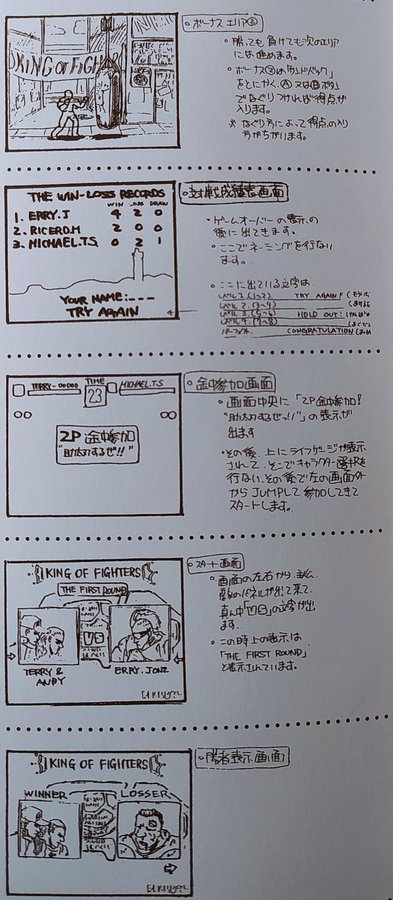 KING OF FIGH
ボーナスエリア②
・勝っても負けても次のエリア
には進めます。
・ボーナス②は「サンドバック」
をとにかく、Ⓐ又はⒷボタン
でなぐりつければ得点が
入ります。
※なぐり方によって得点の入り
方がちがいます。
THE WIN-LOSS RECORDS
WIN LOSS DRAW
1. ERRY.J 4 2 0
2. RICERD.M 2 0 0
3. MICHAEL.T.S 0 2 1
YOUR NAME:_ _ _
TRY AGAIN
対戦成績表画面
・ゲームオーバーの表示の
後に出てきます。
・ここでネーミングを行ない
ます。
・ここに出ている文字は、
レベル1.(1~2) TRY AGAIN!!
レベル2.(3~4)
レベル3.(5~6) HOLD OUT!
レベル4.(7~8)
パーフェクト. CONGRATULATION
TERRY-00000
TIME
23
MICHAEL.T.S
2P 途中参加
"助太刀するぜ!!"
途中参加画面
・画面中央に「2P途中参加!
"助太刀するぜっ!!"」の表示が
出ます
・その後、上にライフゲージが表示
されて、そこでキャラクター選択を
行ない、その後で左の画面外
からJUMPして参加してきて
スタートします。
KING OF FIGHTERS
THE FIRST ROUND
VS
TERRY &
ANDY
ERRY.JONZ
スタート画面
・画面の左右から
のパネルが出て来て、
真ん中「VS」の文字が出
ます。
・この時上の表示は、
「THE FIRST ROUND」
と表示されています。
KING OF FIGHTERS
WINNER
LOSSER
勝者表示画面